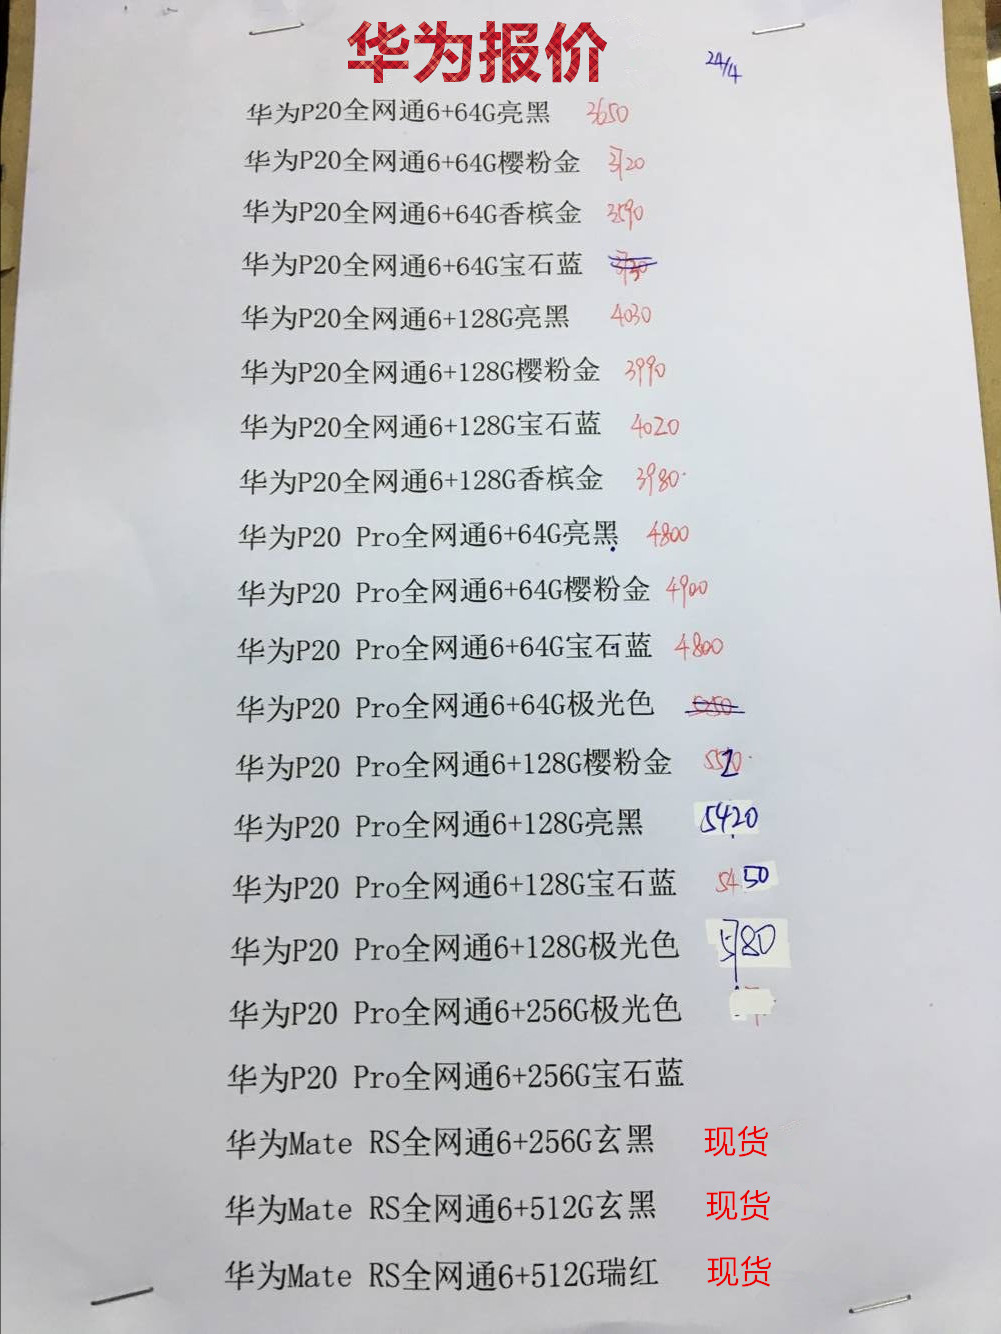 华为报价
24/4
华为P20全网通6+64G亮黑 3650
华为P20全网通6+64G樱粉金 3720
华为P20全网通6+64G香槟金 3590
华为P20全网通6+64G宝石蓝
华为P20全网通6+128G亮黑 4030
华为P20全网通6+128G樱粉金 3990
华为P20全网通6+128G宝石蓝 4020
华为P20全网通6+128G香槟金 3980
华为P20 Pro全网通6+64G亮黑 4800
华为P20 Pro全网通6+64G樱粉金 4900
华为P20 Pro全网通6+64G宝石蓝 4800
华为P20 Pro全网通6+64G极光色
华为P20 Pro全网通6+128G樱粉金
华为P20 Pro全网通6+128G亮黑 5420
华为P20 Pro全网通6+128G宝石蓝 5450
华为P20 Pro全网通6+128G极光色 5780
华为P20 Pro全网通6+256G极光色
华为P20 Pro全网通6+256G宝石蓝
华为Mate RS全网通6+256G玄黑 现货
华为Mate RS全网通6+512G玄黑 现货
华为Mate RS全网通6+512G瑞红 现货